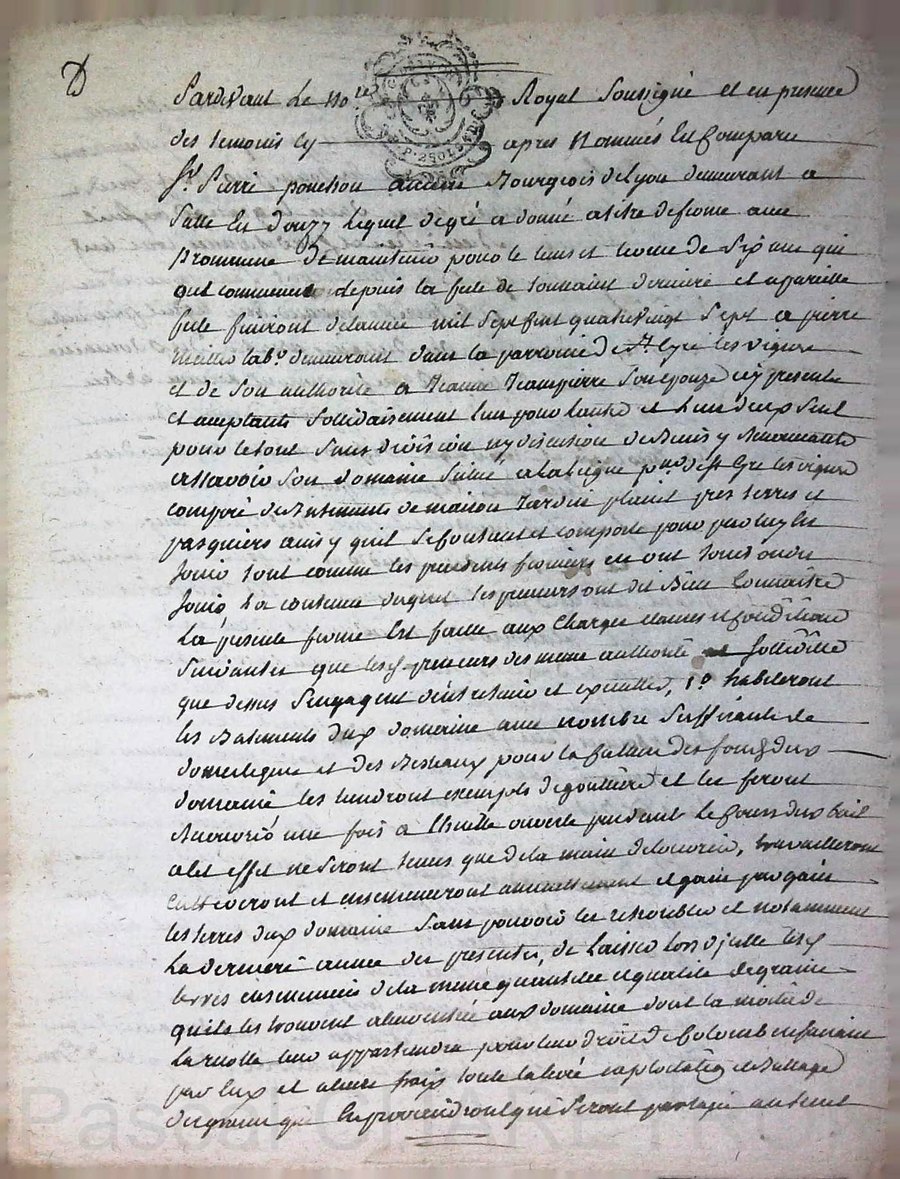 Pardevant Le no.re Royal Soussigné et en presence
des temoins cy apres Nommés Est Comparu
Sr. Pierre ponchon ancien Bourgeois de Lyon demeurant a
Salle En Donzy Lequel de gré a donné a titre de ferme avec
Promesse De maintenir pour le tems et terme de six ans qui
ont commencé depuis la fete de toussaint derniere et a pareille
fete finiront de lannee mil sept Cent quatrevingt Sept a pierre
lab.r demeurant dans la parroisse De St. Cyr les vignes
et de Son authorité a Jeanne Jeanpierre Son Epouse cy presente
et acceptants Sollidairement lun pour lautre et lun deux Seul
pour le tout Sans division ny discution de biens y Renonceants
assavoir Son domaine Situé a p.sse de St. Cyr les vignes
composé de Batiments de maison Jardin prés terres et
pasquiers ainsy quil Se Contient et comporte pour par Eux En
Jouir tout comme les precedents fermiers en ont Joui ou du
Jouir La contenue duquel les preneurs ont dit Bien Connoitre
La presente ferme Est faitte aux Charges clauses et Conditions
Suivantes que lesd. preneurs de meme authorité et Sollidité
que dessus Sengagent dentretenir et executter, 1.o habiteront
les Batiments dud. domaine avec nombre Suffisants de
domestiques et des Bestiaux pour la Culture des fonds dud.
domaine les tiendront exempts de gouttiere et les feront
Recouvrir une fois a thuille ouverte pendant le Cours dud. bail
a Cet effet ne Seront tenus que de la main de louvrier, travailleront
Cultiveront et ensemenceront annuellement et gain par gain
les terres dud. domaine Sans pouvoir les retroubler et notamment
La derniere annee des presentes, de Laisser lors dicelle lesd.
terres ensemencées de la meme quantitée et qualité de grains
quils les trouvent a leur entrée aud. domaine dont la moitié de
La recolte leur appartiendra pour leur droit de Colomb en faisant
par Eux et a leurs frais toute la levée exploitation et Battage
des grains qui En proviendront qui Seront partagés au